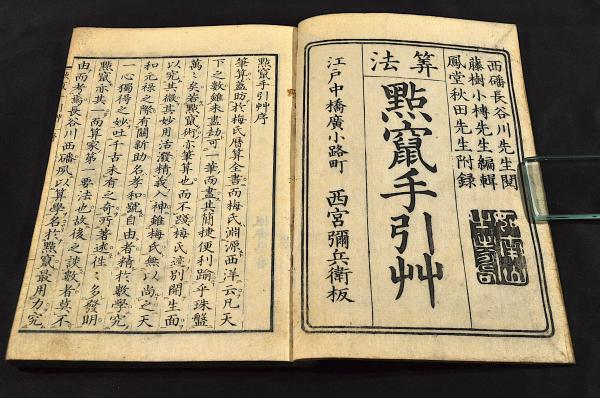 西磻長谷川先生閲
藤樹小槫先生編輯
鳳堂秋田先生附録
算法
點竄手引艸
江戸中橋廣小路町 西宮彌兵衛板
點竄手引艸序
筆算盖昉於梅氏暦算全書而梅氏淵源西洋云凡天
下之數雖未盡劫可一筆而盡其簡捷便利踰乎珠盤
萬〻矣若點竄術亦筆算也而不踐梅氏逹別開生面
以究其微其妙用活潑精義入神雖梅氏無以尚之天
和元禄之際有關新助名孝和號自由者精於數學究
一心獨得之妙吐千古未有之奇所著述徃〻多發明
點竄亦其一而算家第一要法也故後之談數者莫不
由而考焉長谷川西磻夙以算學名於點竄最用力究